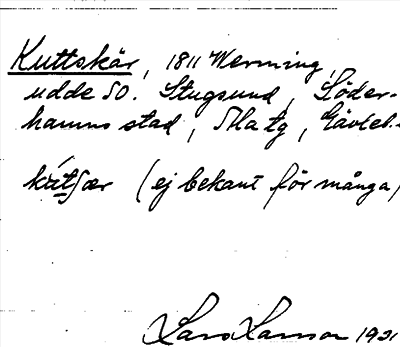 Kuttskär, 1811 Werming,
udde SO. Stugsund, Söder-
hamns stad,
(ej bekant för många)
Lars Larson 1921